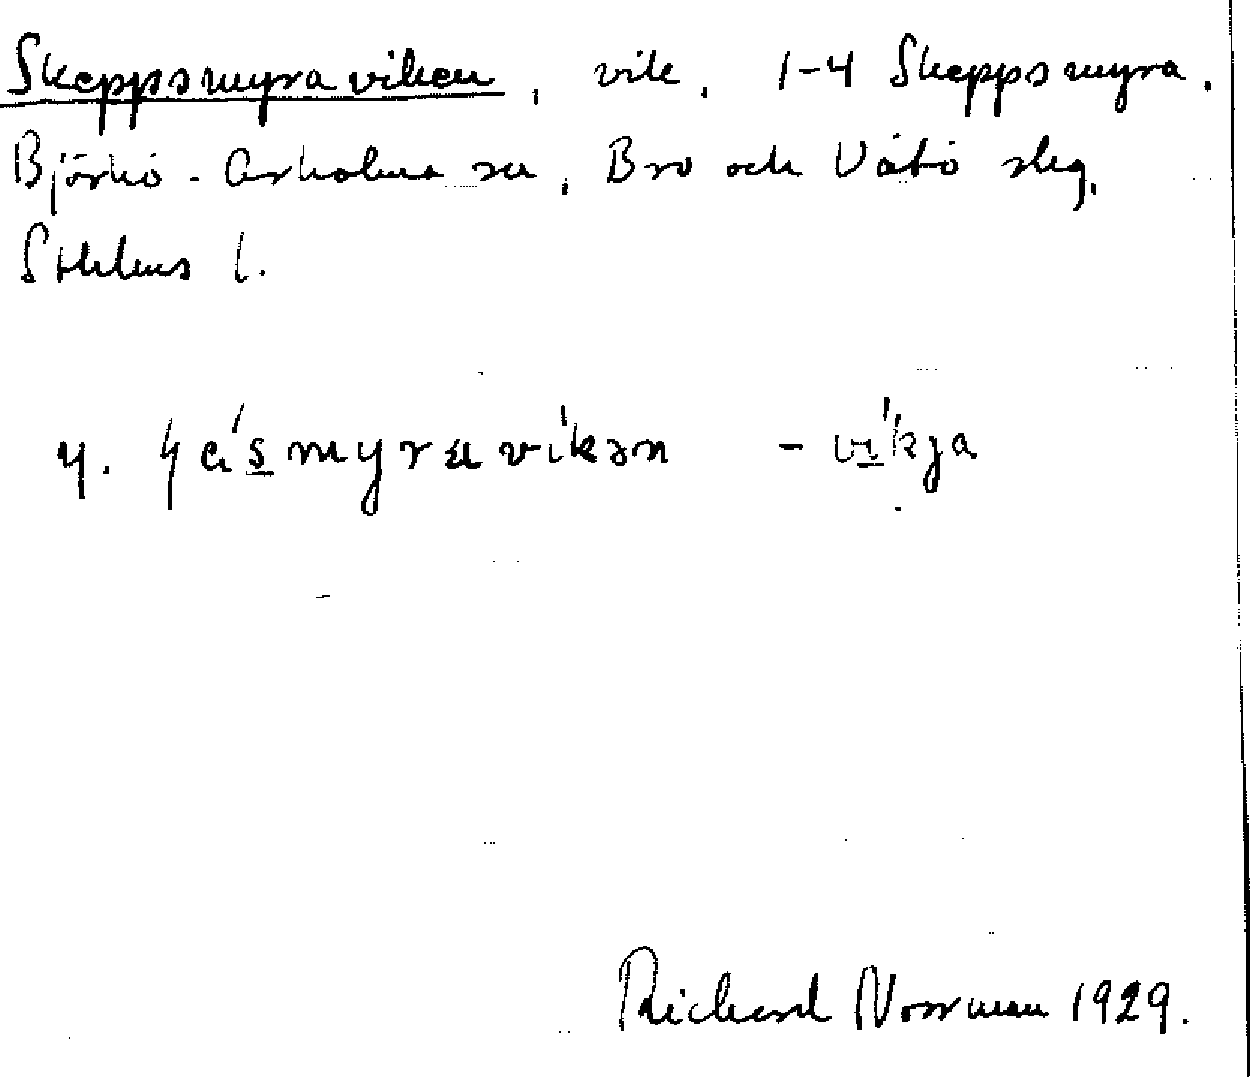 Skeppsmyraviken, vik, 1-4 Skeppsmyra.
Björkö-Arholma sn, Bro och Vätö skg,
Sthlms l.
4. víkən - víkja
Richard Norrman 1929.